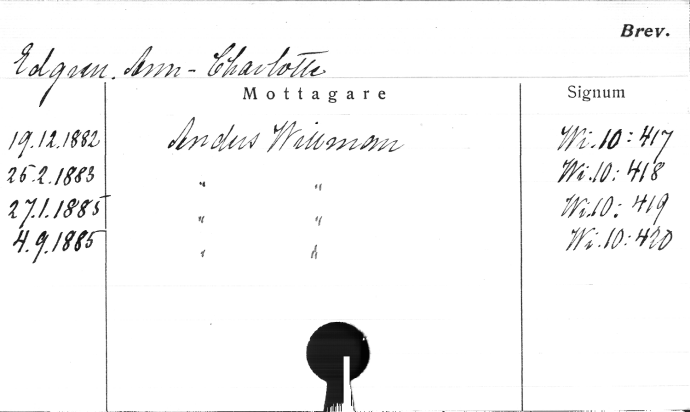 Brev.
Edgren, Ann-Charlotte
Mottagare Signum
19.12.1882 Anders Willman Wi.10:417
25.2.1883 " " Wi.10:418
27.1.1885 " " Wi.10:419
4.9.1885 " " Wi.10:420